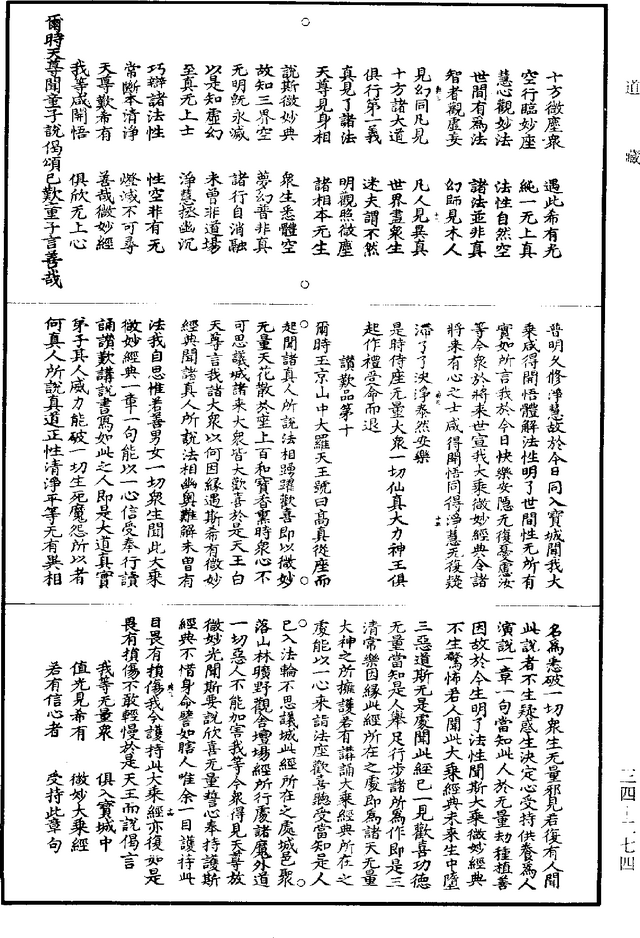 道藏
十方微塵衆　遇此希有光
空行臨妙座　純一无上真
慧心觀妙法　法性自然空
世間有爲法　諸法並非真
智者觀虛妄　幻師見木人
見幻同凡見　凡人見異真
十方諸大道　世界盡衆生
俱行第一義　迷夫謂不然
真見了諸法　明觀照微塵
天尊見身相　諸相本无生
說斯微妙典　衆生悉體空
故知三界空　夢幻普非真
无明既永滅　諸行自消融
以是知虛幻　未曾非道場
至真无上士　淨慧拯幽沉
巧辯諸法性　性空非有无
常斷本清淨　煙滅不可尋
天尊歎希有　善哉微妙經
我等咸開悟　俱欣无上心
爾時天尊聞童子說偈頌已歎童子言善哉
普明久修淨慧故於今日同入寶城聞我大
乘咸得開悟體解法性明了世間性无所有
實如所言我於今日快樂安隱无復憂慮汝
等今衆於將來世宣我大乘微妙經典令諸
將來有心之士咸得開悟同得淨慧无復疑
滯了了決淨泰然安樂
是時侍座无量大衆一切仙真大力神王俱
起作禮受命而退
讚歎品第十
爾時玉京山中大羅天王號曰高真從座而
起聞諸真人所說法相踴躍歡喜即以微妙
无量天花散於座上百和寶香熏時衆心不
可思議城諸來大衆皆大歡喜於是天王白
天尊言我諸大衆以何因緣遇斯希有微妙
經典聞諸真人所說法相幽奧難解未曾有
法我自思惟若善男女一切衆生聞此大乘
微妙經典一章一句能以一心信受奉行讀
誦讚歎講說書寫如此之人即是大道真實
弟子其人威力能破一切生死魔怨所以者
何真人所說真道正性清淨平等无有異相
名爲悉破一切衆生无量邪見若復有人聞
此說者不生疑惑生決定心受持供養爲人
演說一章一句當知此人於无量劫種植善
因故於今生明了法性聞斯大乘微妙經典
不生驚怖若人聞此大乘經典未來生中墮
三惡道斯无是處聞此經已一見歡喜功德
无量當知是人舉足行步諸所爲作即是三
清常樂因緣此經所在之處即爲諸天无量
大神之所擁護若有講誦大乘經典所在之
處能以一心來詣法座歡喜聽受當知是人
已入法輪不思議城此經所在之處城邑聚
落山林曠野觀舍壇場經所行處諸魔外道
一切惡人不能加害我等今衆得見天尊故
微妙光聞斯要說欣喜无量誓心奉持護斯
經典不惜身命譬如瞎人唯余一目護持此
目畏有損傷我今護持此大乘經亦復如是
畏有損傷不敢輕慢於是天王而說偈言
我等无量衆　俱入寶城中
值光見希有　微妙大乘經
若有信心者　受持此章句
三四―一七四